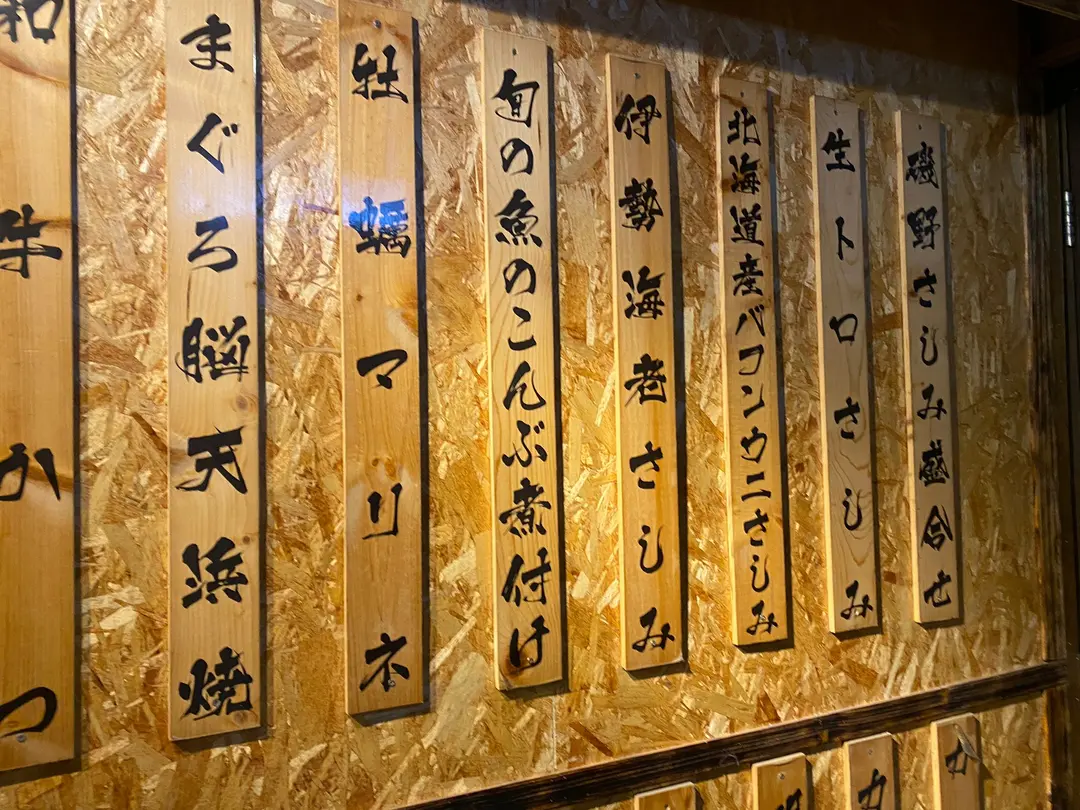 磯野さしみ盛合せ
生トロさしみ
北海道産バフンウニさしみ
伊勢海老さしみ
旬の魚のこんぶ煮付け
牡蠣マリネ
まぐろ脳天浜焼
和牛かつ
か